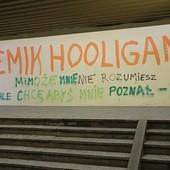 EMIK HOOLIGAN
MIMO ŻE MNIE NIE ROZUMIESZ
ALE CHCĘ ABYŚ MNIE POZNAŁ -